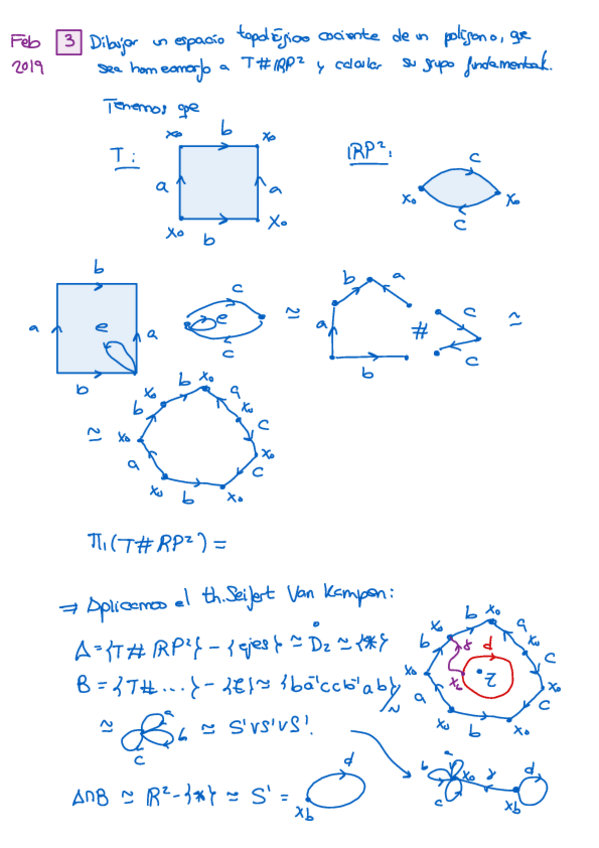 Feb 3 Dibujar un espacio topológico cociente de un polígono, que
2019 sea homeomorfo a T#RP² y calcular su grupo fundamental.
Tenemos que
x₀ b x₀
T: a a
x₀ b x₀
RP²: c
x₀ x₀
c
b
a e a
b
c
e
c
≅
b a
a
b
#
c
c
≅
≅
x₀ b x₀ a
b x₀
x₀ c
a x₀
x₀ b x₀ c
π₁(T#RP²) =
⇒ Aplicamos el th. Seifert Van Kampen:
A = {T#RP²} - {ejes} ≃ D̊₂ ≃ {*}
B = {T#...} - {z} ≃ {ba⁻¹ccb⁻¹ab}/~
≃ a b c ≃ S¹∨S¹∨S¹.
A∩B ≃ R² - {*} ≃ S¹ = d
x_b
x₀ b x₀ a
b γ d x₀
x₀ z c
a x₀
x₀ b x₀ c
a
b x₀ γ d
c x_b